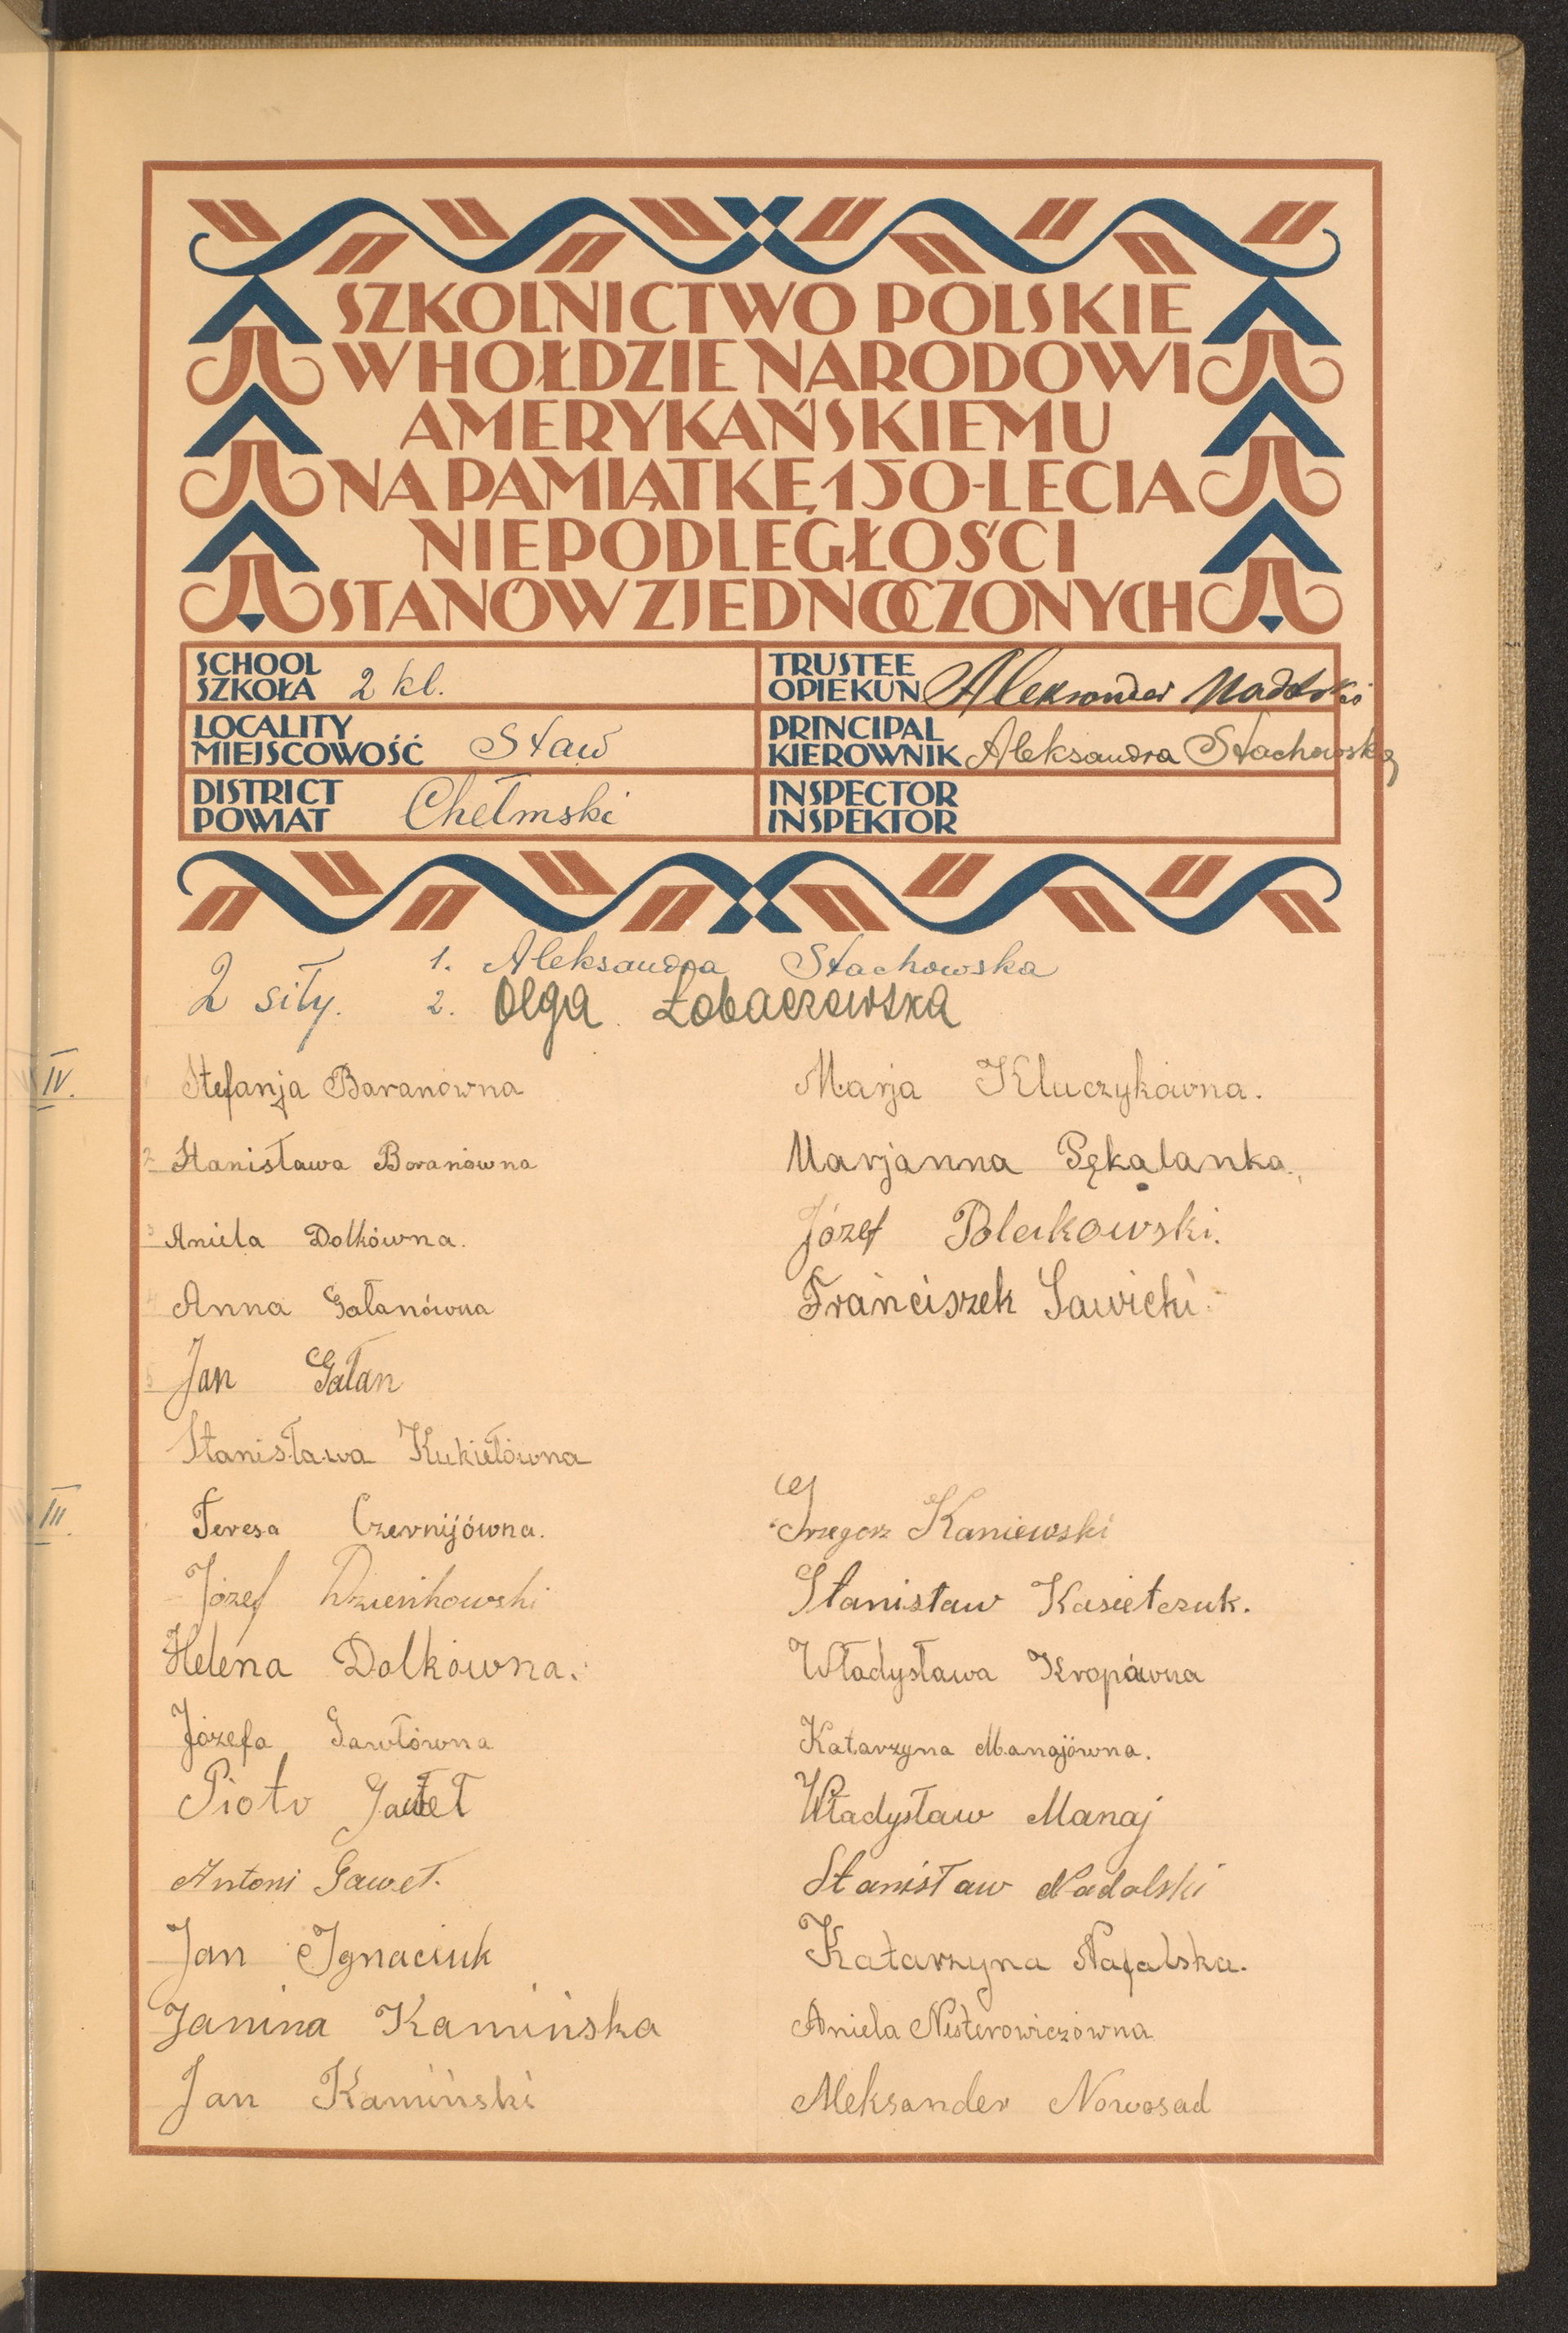 SZKOLNICTWO POLSKIE
W HOŁDZIE NARODOWI
AMERYKAŃSKIEMU
NA PAMIĄTKĘ 150-LECIA
NIEPODLEGŁOŚCI
STANÓW ZJEDNOCZONYCH
SCHOOL
SZKOŁA 2 kl.
TRUSTEE
OPIEKUN Aleksander
LOCALITY
MIEJSCOWOŚĆ Staw
PRINCIPAL
KIEROWNIK Aleksandra Stachowska
DISTRICT
POWIAT Chełmski
INSPECTOR
INSPEKTOR
2 siły. 1. Aleksandra Stachowska
2. Olga Łobaczewska
IV.
Stefanja Baranówna
2 Stanisława Boranówna
3 Aniela Dolkówna.
4 Anna Gałanówna
5 Jan Gałan
Stanisława Kukiełówna
Marja Kluczykówna.
Marjanna Pękalanka.
Józef Polakowski.
Franciszek Sawicki.
III.
Teresa Czernijówna.
Józef Dzienkowski
Helena Dolkówna.
Józefa Gawłówna
Piotr Gaweł
Antoni Gaweł.
Jan Ignaciuk
Janina Kamińska
Jan Kamiński
Grzegorz Kaniewski
Stanisław Kasietczuk.
Władysława Kropówna
Katarzyna Manajówna.
Władysław Manaj
Stanisław Nadolski
Katarzyna Nafalska.
Aniela Nesterowiczówna
Aleksander Nowosad